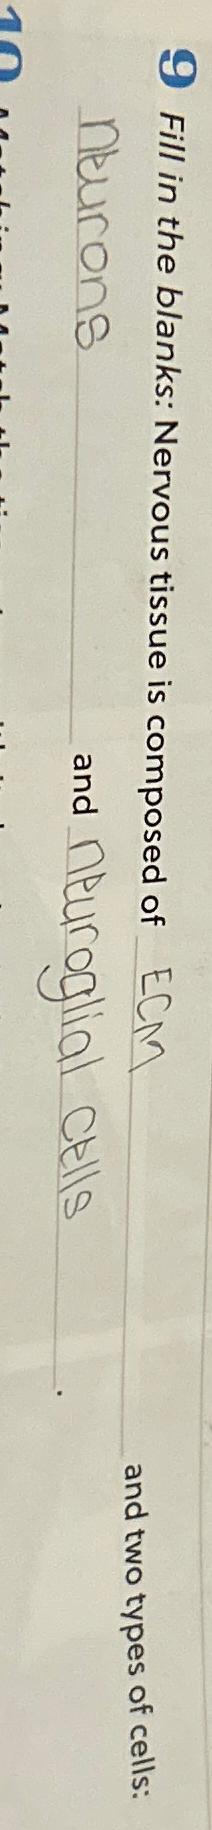 9 Fill in the blanks: Nervous tissue is composed of ECM and two types of cells:
neurons and neuroglial cells.
10